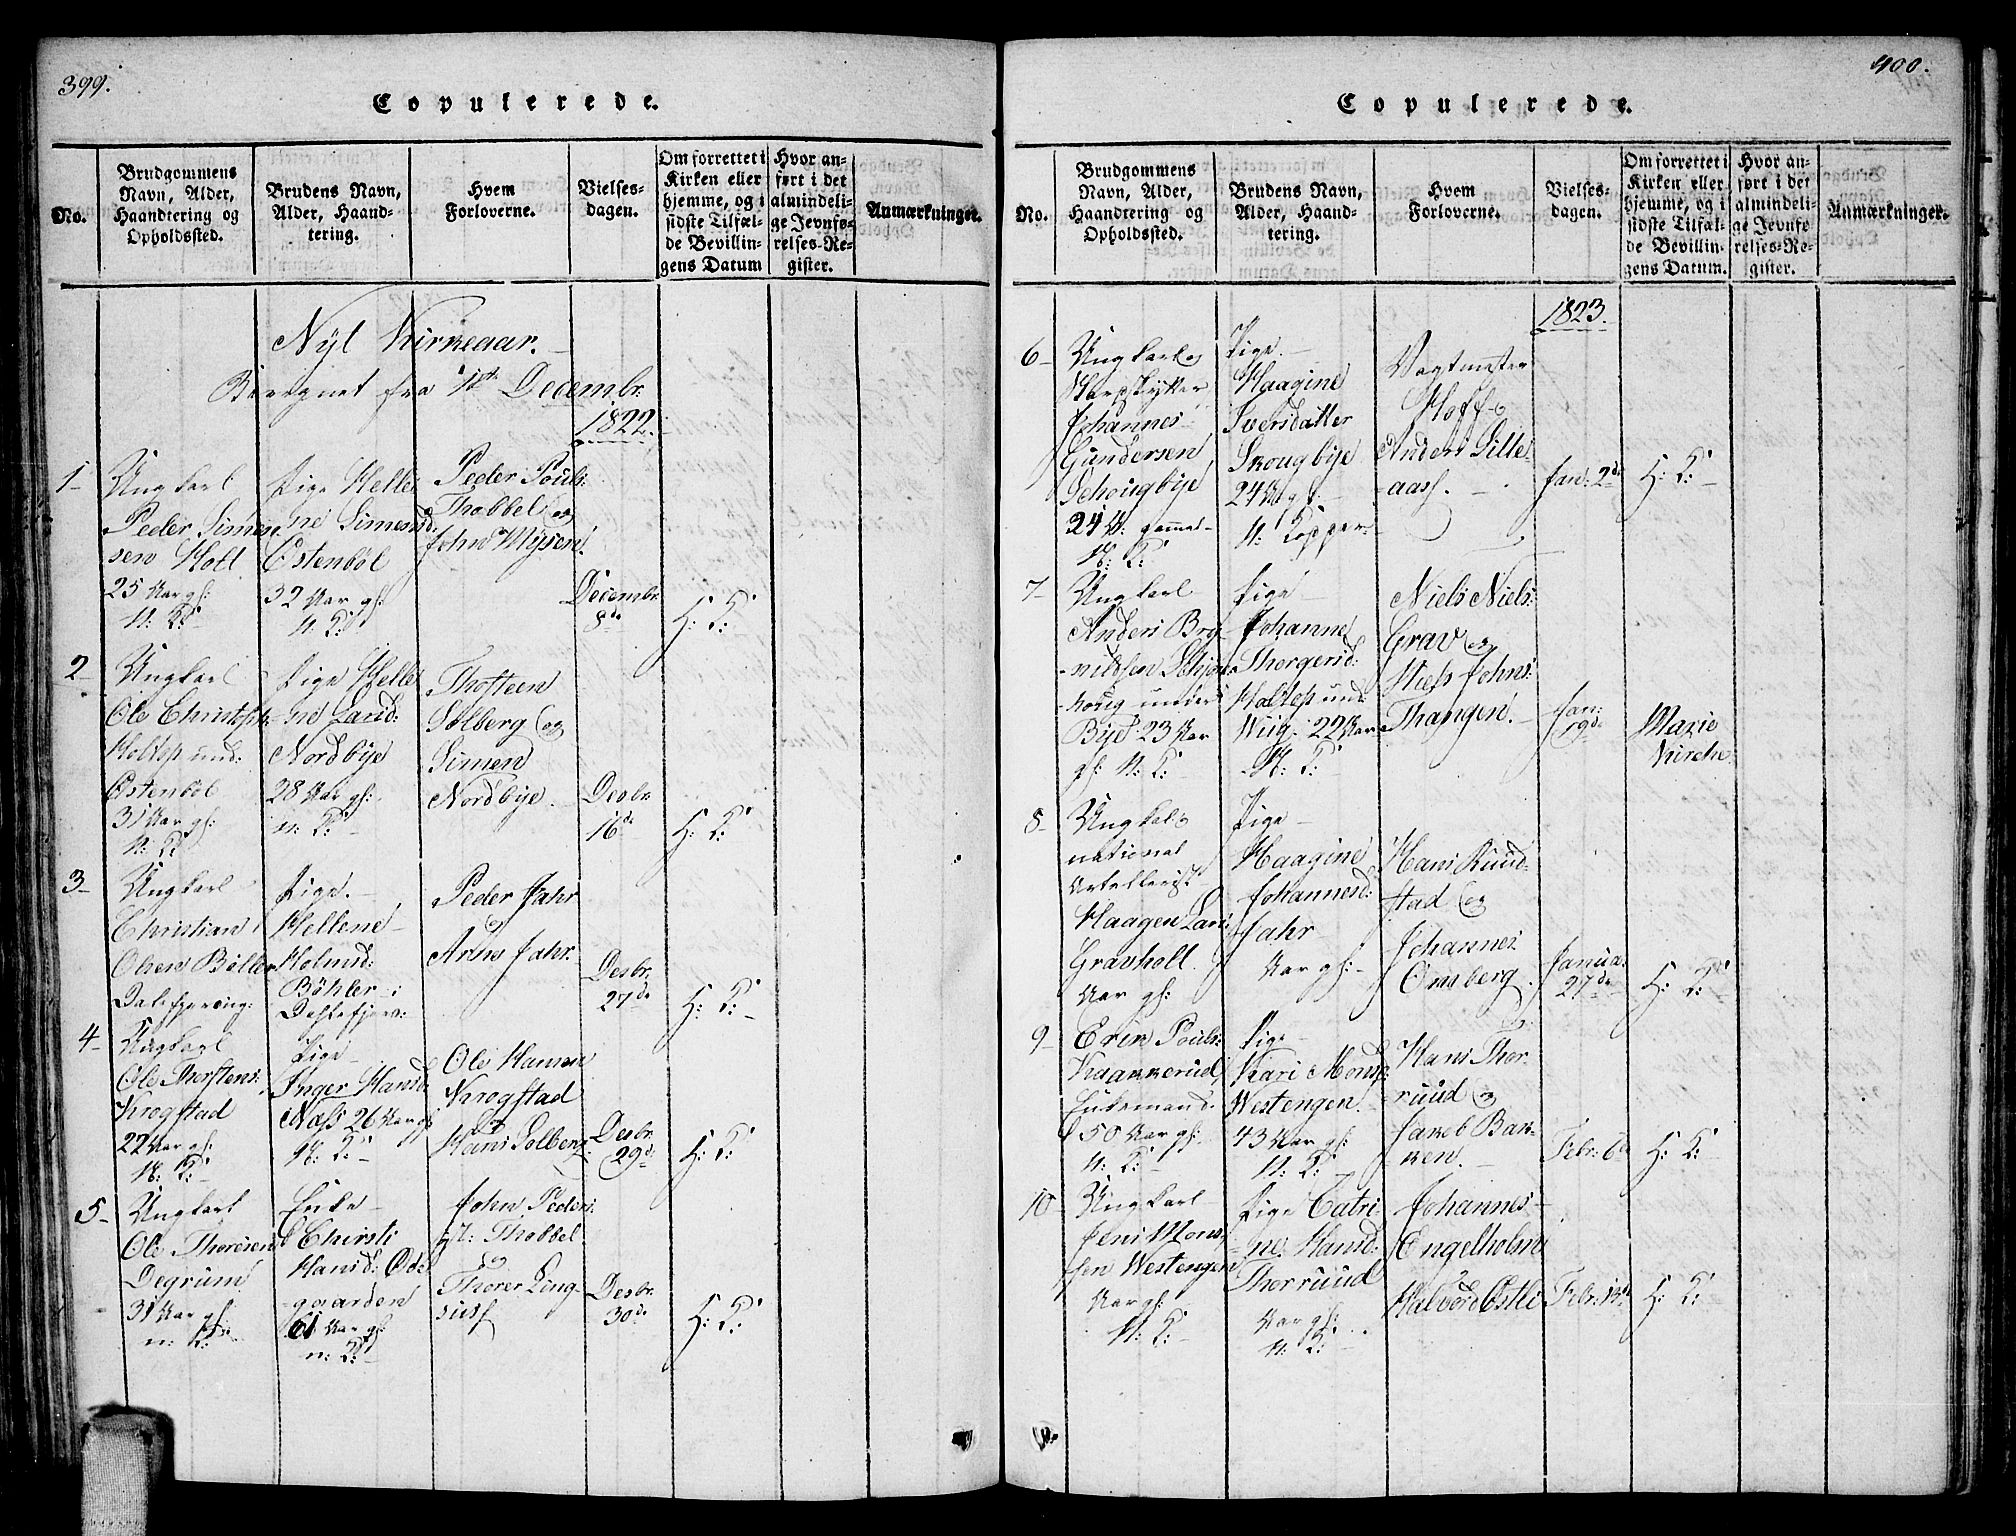 399.
Copulerede.
No.
Brudgommens
Navn, Alder,
Haandtering og
Opholdssted.
Brudens Navn,
Alder, Haand-
tering.
Hvem
Forloverne.
Vielses-
dagen.
Om forrettet i
Kirken eller
hjemme, og i
sidste Tilfæl-
de Bevillin-
gens Datum
Hvor an-
ført i det
almindeli-
ge Jevnfø-
relses-Re-
gister.
Anmærkninger.
Nyt Kirkeaar.
Beregnet fra 1ste Decembr:
1822.
1-
Ungkarl
Peder Simen-
sen Holt
25 Aar gl:
Pige Helle
ne Simensd:
Østenbøl
32 Aar gl:
Peder Pouls:
Thobbel og
John Mysen
Decembr:
8de
H: K:
2-
Ungkarl
Ole Christoph:
Holtet und:
Østenbøl
31 Aar gl:
Pige Helle
ne Larsd:
Nordbye
28 Aar gl:
Thosteen
Solberg og
Simen
Nordbye.
Desbr:
16de
H: K:
3-
Ungkarl
Christian
Olsen Bøller
Pige.
Hellene
Holmd:
Bøhler i
Peder Jahr
og
Arne Jahr.
Desbr:
27de
H: K:
4-
Ungkarl
Ole Thorstens:
Krogstad
22 Aar gl:
Pige
Inger Hansd:
Næss 26 Aar gl
Ole Hansen
Krogstad
og
Hans Solberg
Desbr:
29de
H: K:
5-
Ungkarl
Ole Thoresen
Degrum
31 Aar gl:
Enke
Chirsti
Hansd: Øde
gaarden
61 Aar gl:
John Peders:
Thobbel
og
Thorer Ling-
Desbr:
30de
H: K:
400.
Copulerede.
No.
Brudgommens
Navn, Alder,
Haandtering og
Opholdssted.
Brudens Navn,
Alder, Haand-
tering.
Hvem
Forloverne.
Vielses-
dagen.
Om forrettet i
Kirken eller
hjemme, og i
sidste Tilfæl-
de Bevillin-
gens Datum.
Hvor an-
ført i det
almindeli-
ge Jevnfø-
relses-Re-
gister.
Anmærkninger.
1823.
6-
Ungkarl og
Johannes
Gundersen
Schougbye
24 Aar gammel
Pige
Haagine
Iversdatter
Skougbye
24 Aar gl:
Vagtmester
Hoff og
Anders Lille-
aass.
Jan: 2de
H: K:
7-
Ungkarl
Anders Bry-
nildsen
under
Bye 23 Aar
gl:
Pige
Johanne
Thorgersd:
Holtet und:
Wiig 22 Aar
Niels Niels:
Grav og
Niels Johns:
Thangen.
Jan:
19de
Marie
Kirche
8-
Ungkarl og
national
Artellerist
Haagen Lars:
Gravholt
Aar gl:
Pige
Haagine
Johannesd:
Jahr
Aar gl:
Hans Ruud-
stad og
Johannes
Omsberg.
Janua:
27de
H: K:
9-
Erik Pouls:
Kaakkerud
Enkemand
50 Aar gl:
Pige
Kari Mons:
Westengen.
43 Aar gl:
Hans Thor-
ruud og
Jakob Bak-
ken.
Febr: 6te
H: K:
10
Ungkarl
Jens Mons-
sen Westengen
Aar gl:
Pige Catri-
ne Hansd:
Thorruud
Aar gl:
Johannes
Engelholm
og
Halvord Østli
Febr: 13de
H: K: